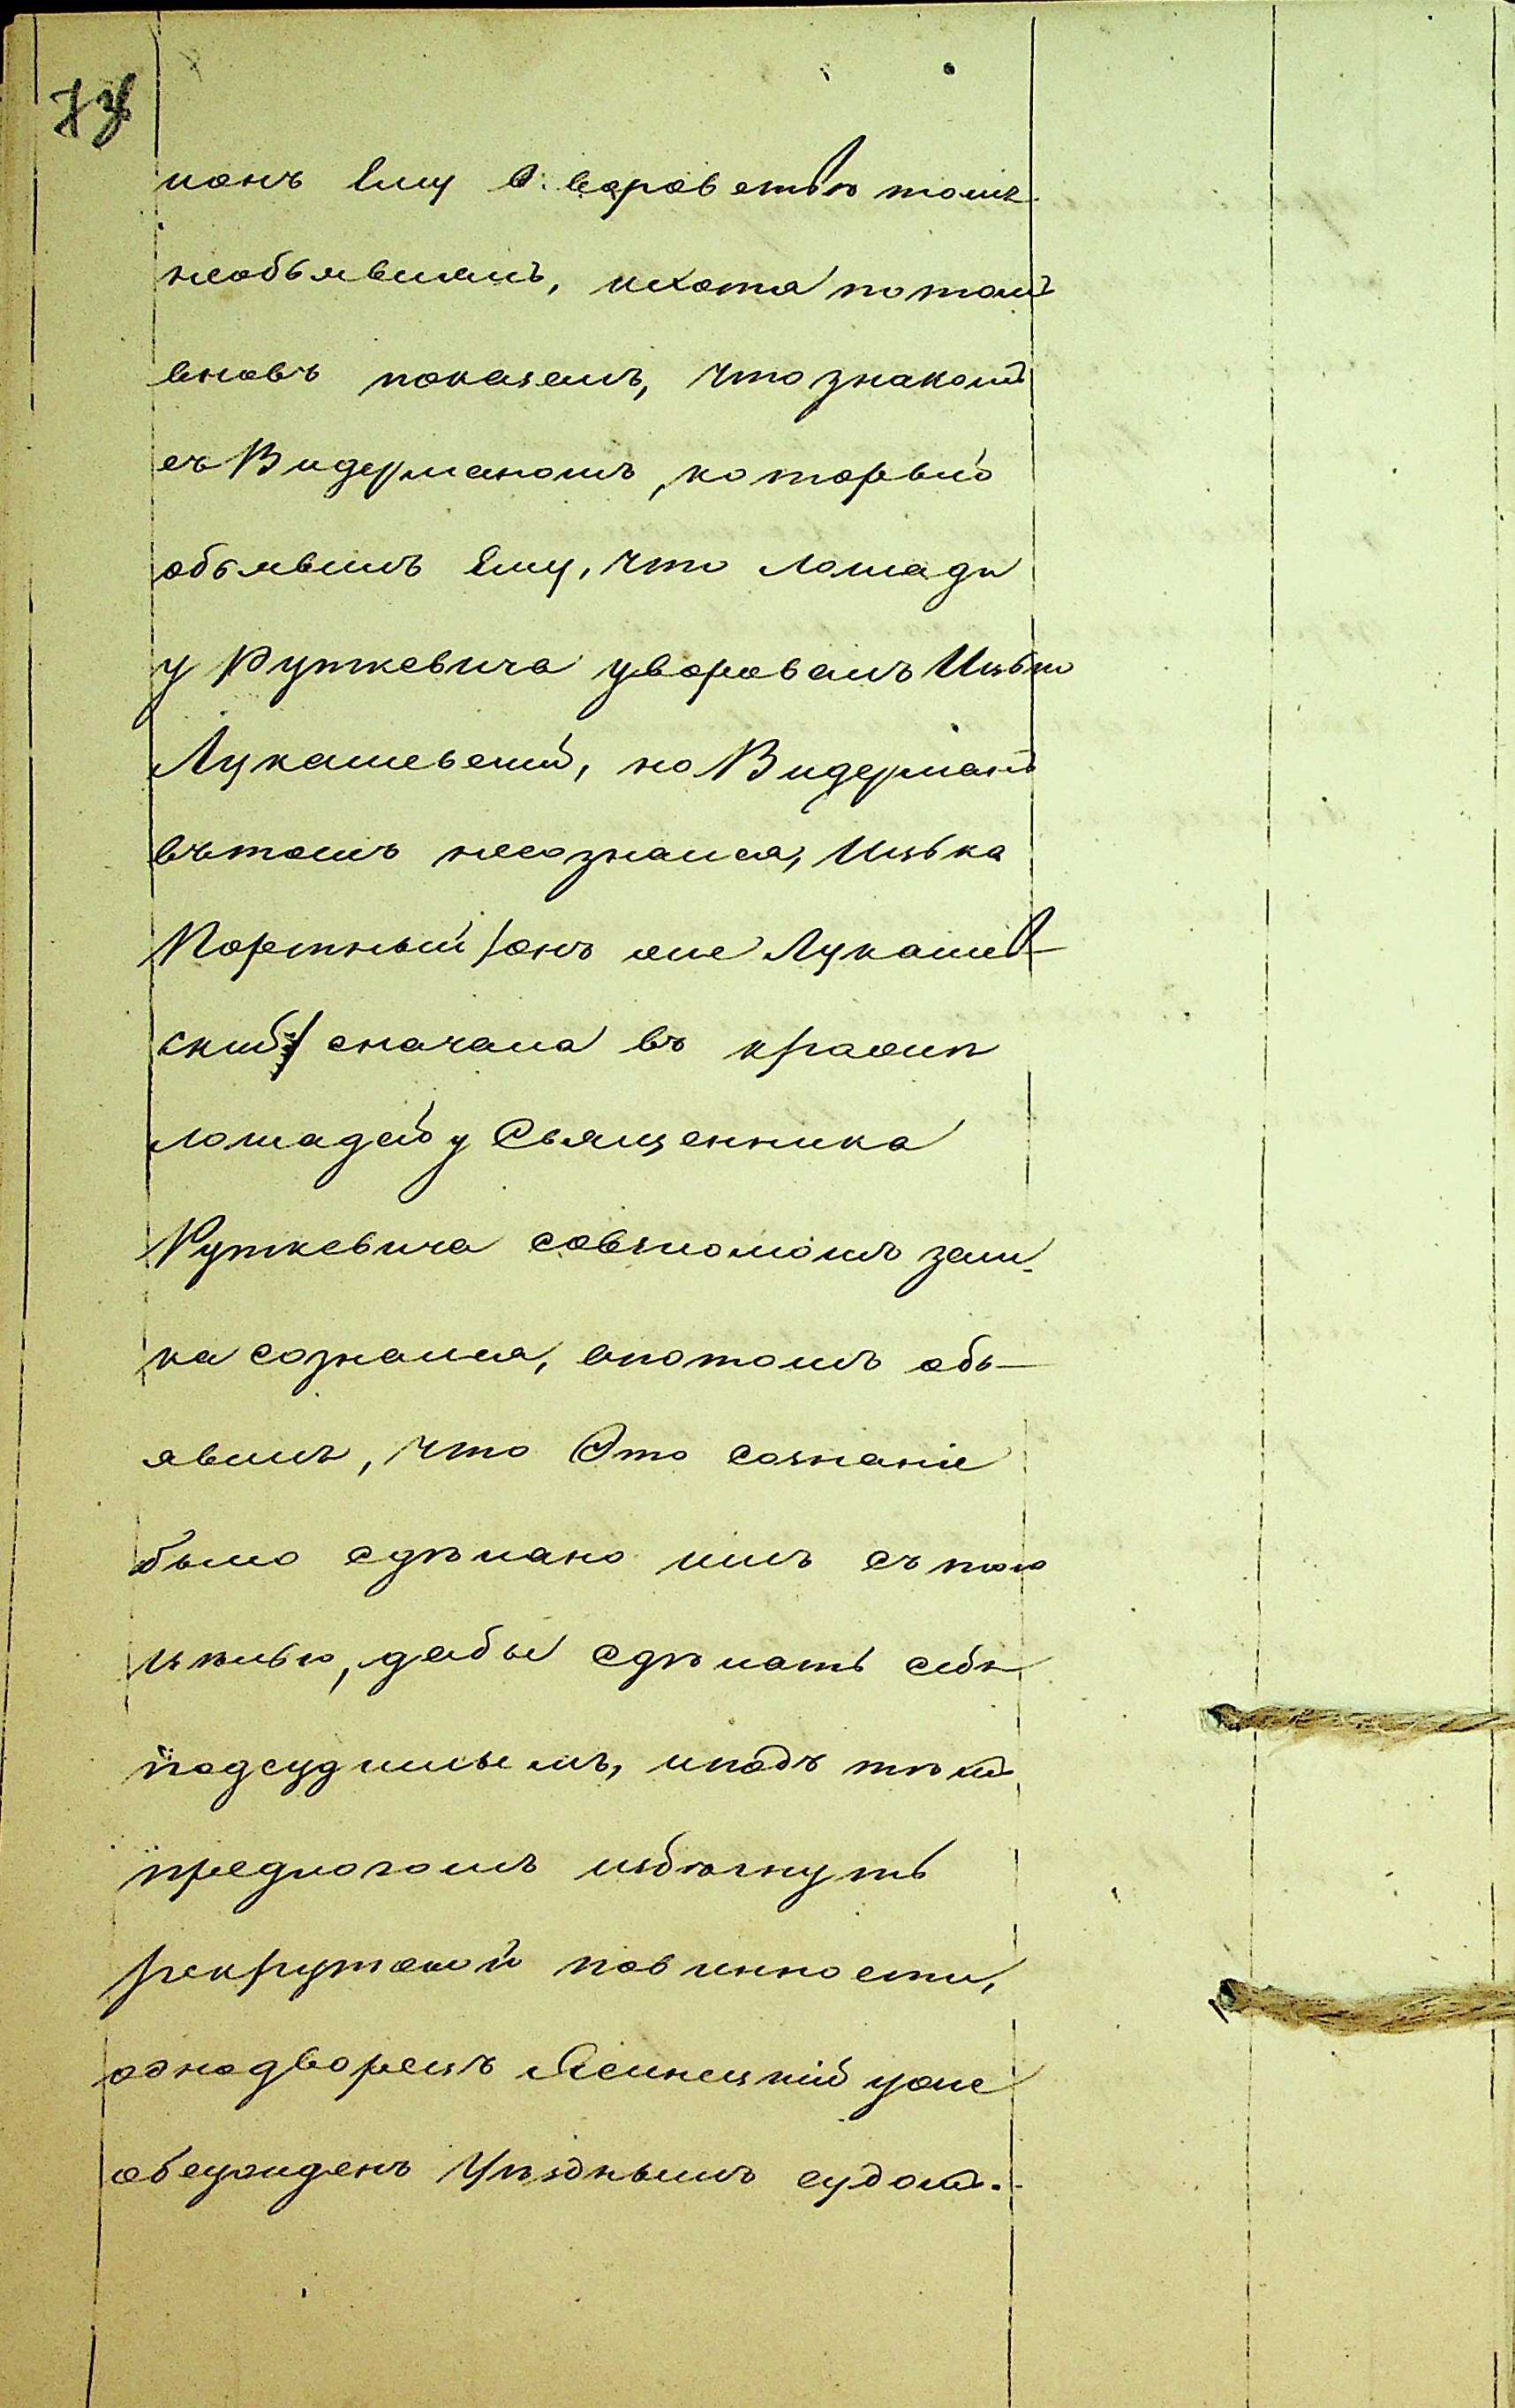 нонъ Ему о воровствѣ томъ
необъявилъ, ихотя потомъ
вновь показалъ, что знакомъ
съ Видерманомъ, который
объявилъ Ему, что лошади
у Руткевича уворовалъ Ицько
Лукашевский, но Видерманъ
въ томъ несознался, Ицька
Портный /онъ же Лукашев-
ский/ сначала въ кражи
лошадей у Священника
Руткевича совзломомъ зам-
ка сознался, апотомъ объ-
явилъ, что Это сознаніе
было сдѣлано имъ съ тою
цѣлью, дабы сдѣлать себя
подсудимымъ, иподъ тѣмъ
предлогомъ избѣгнуть
рекрутской повинности,
однодворецъ Ясинецкій уже
обсужденъ Уѣзднымъ судомъ.